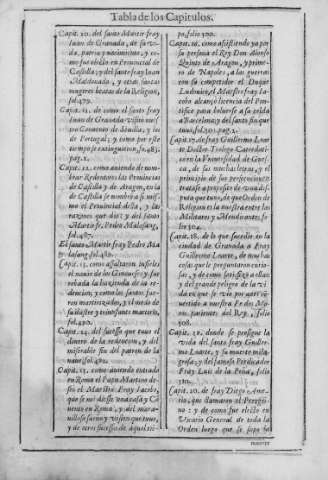 Tabla de los Capitulos.
Capit. 10. del santo Martir fray
Iuan de Granada, de su vi-
da, patria y nacimiento, y co-
mo fue electo en Prouincial de
Castilla: y del santo fray Iuan
Maldonado, y otras santas
mugeres beatas de la Religion,
fol. 479.
Capit. 11. de como el santo fray
Iuan de Granada visito nues-
tro Conuento de Seuilla, y los
de Portugal; y como por este
tiempo se extinguieron, fo. 483.
pag. 2.
Capit. 12. como auiendo de nom-
brar Redentores las Prouincias
de Castilla y de Aragon, en la
de Castilla se nombrò a si mis-
mo el Prouincial della, y las
razones que dio: y del santo
Martir fr. Pedro Malasang,
fol. 487.
El santo Martir fray Pedro Ma-
lasang fol. 489.
Capit. 13. como assaltaron infieles
el nauio de los
robada la hazienda de la re-
dencion, y como los santos fue-
ron martirizados, y el modo de
su ilustre y triunfante martirio,
fol. 490.
Capit. 14. del sucesso que tuuo el
dinero de la redencion, y del
miserable fin del patron de la
naue fol. 492.
Capit. 15. como auiendo entrado
en Roma el Papa Martino de-
sseo el Maestro fray Iacobo,
que se nos diesse vna casa y Co-
uento en Roma, y del mara-
uilloso fauor y vision que tuuo,
y de otros sucessos de aquel tie-
po, folio 500.
Capit. 16. como assistiendo ya por
su persona el Rey Don Alonso
Quinto de Aragon, y prime-
ro de Napoles, a las guerras
con su competidor el Duque
Ludouico, el Maestro fray Ia-
cobo alcançò licencia del Pon-
tifice para boluerse a su celda
a Barcelona: y del santo fin que
tuuo, fol. 501. pag. 2.
Capit. 17. de fray Guillermo Loar-
te Doctor Teologo Catredati-
co en la Vniuersidad de Gues-
ca, de sus muchas letras, y el
principio de sus persecuciones
tratase a proposito de vna dis-
puta que tuuo, de que Orden de
Religion es la nuestra entre las
Militares y Mendicantes, fo-
lio 504.
Capit. 18. de lo que sucedio en la
ciudad de Granada a fray
Guillermo Loarte, de muchas
cosas que le preguntaron curio-
sas, y de como satisfizo a ellas
y del grande peligro de la vi-
da en que se vio por auer con-
uertido a nuestra Fe dos Mo-
ros parientes del Rey, folio
508.
Capit. 19. donde se prosigue la
vida del santo fray Guiller-
mo Loarte, y su muerte mila-
grosa; y del famoso Predicador
fray Luis de la Peña, folio
510.
Capit. 20. de fray Diego
rio, que llamaron el Peregri-
no: y de como fue electo en
Vicario General de toda la
Orden luego que se supo la